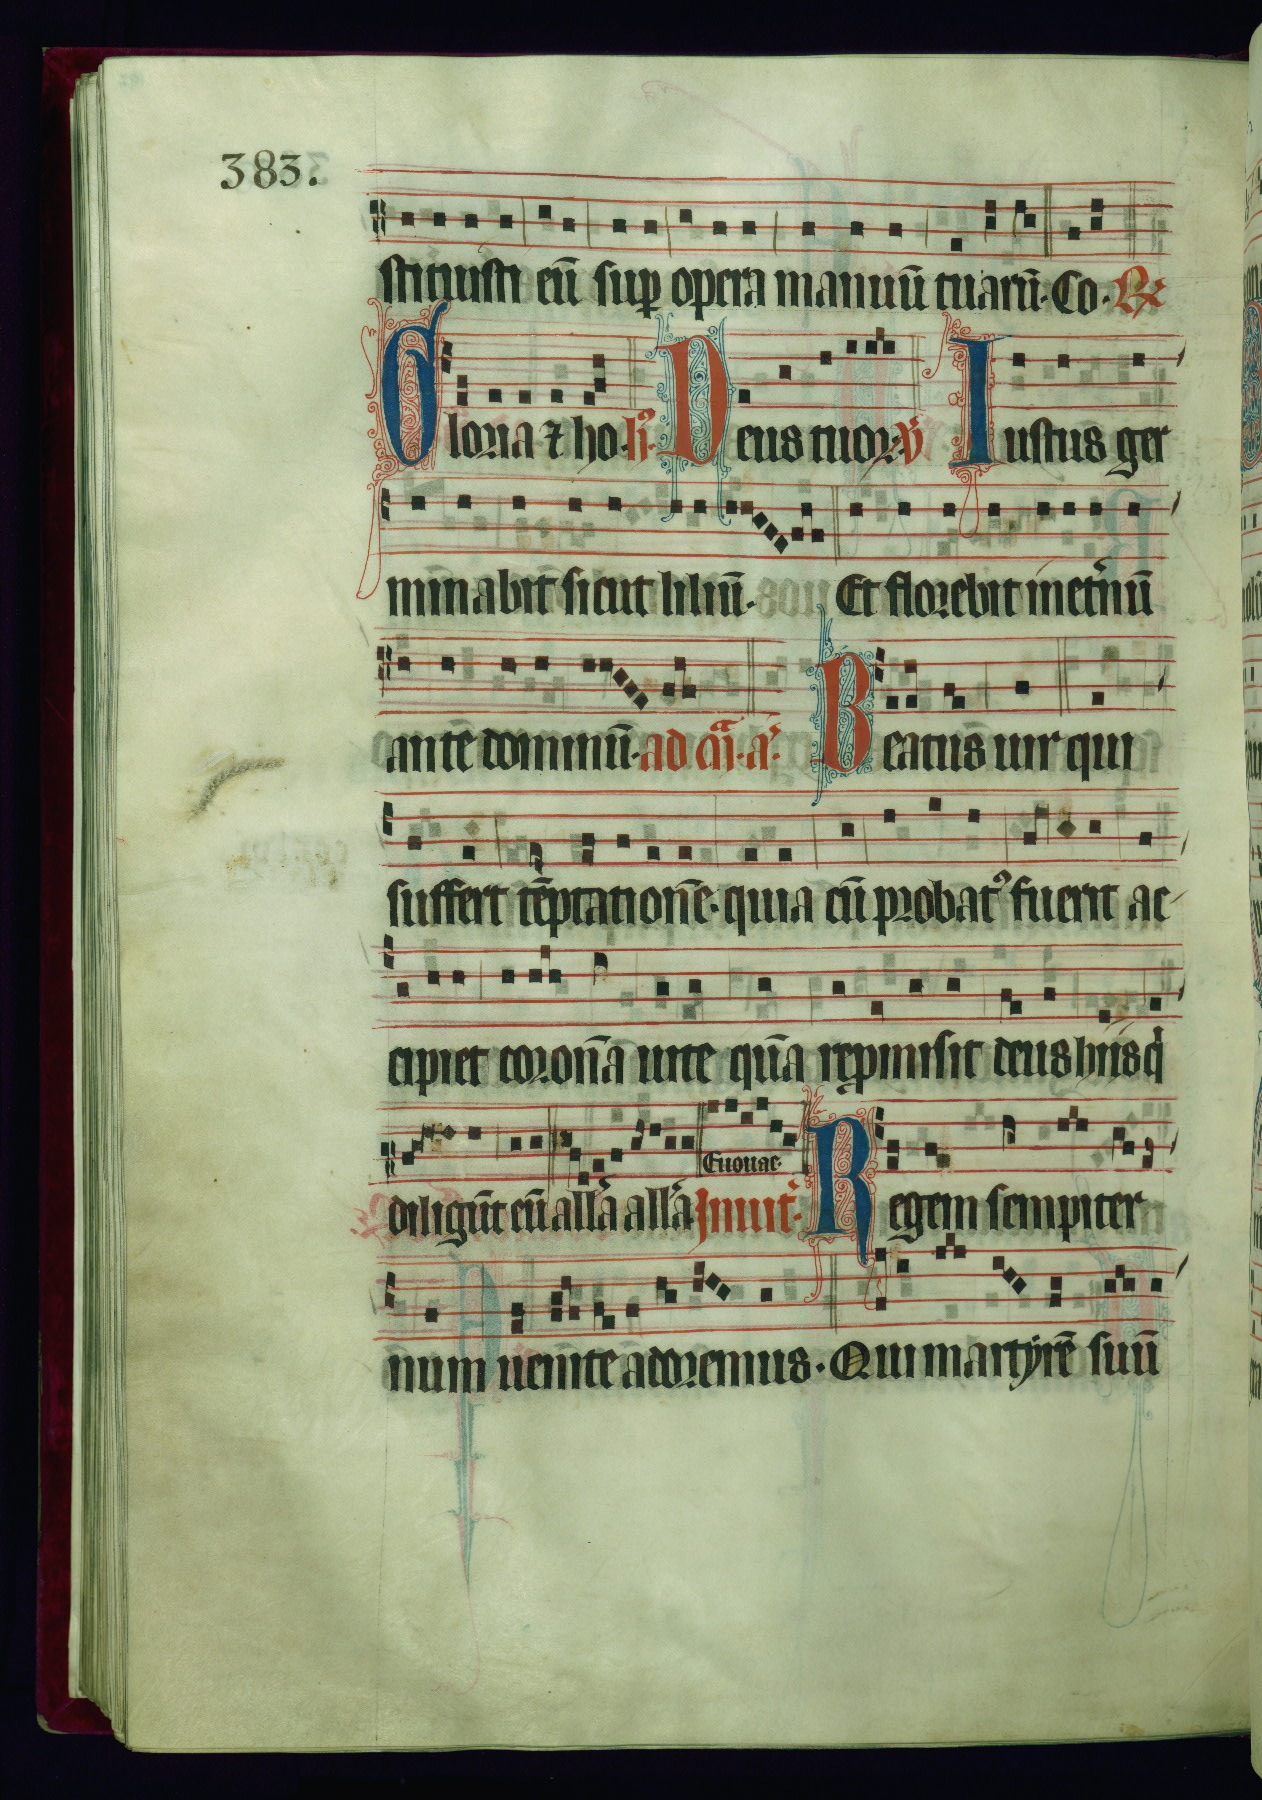 383.
stituisti eū sup opera manuū tuarū. Co. ℟
Gloria ⁊ ho. h̓. Deus tuor. ℣ Iustus ger
minabit sicut liliū. Et florebit inet̓nū
ante dominū. ad a̓. Beatus uir qui
suffert tēptationē. quia cū probat᾽ fuerit ac
cipiet coronā uite quā rep̱misit deus hijs q̇
diligūt eū all̓a all̓a Inuit̓. Regem sempiter
Euouae.
num uenite adoremus. Qui martyrē suū